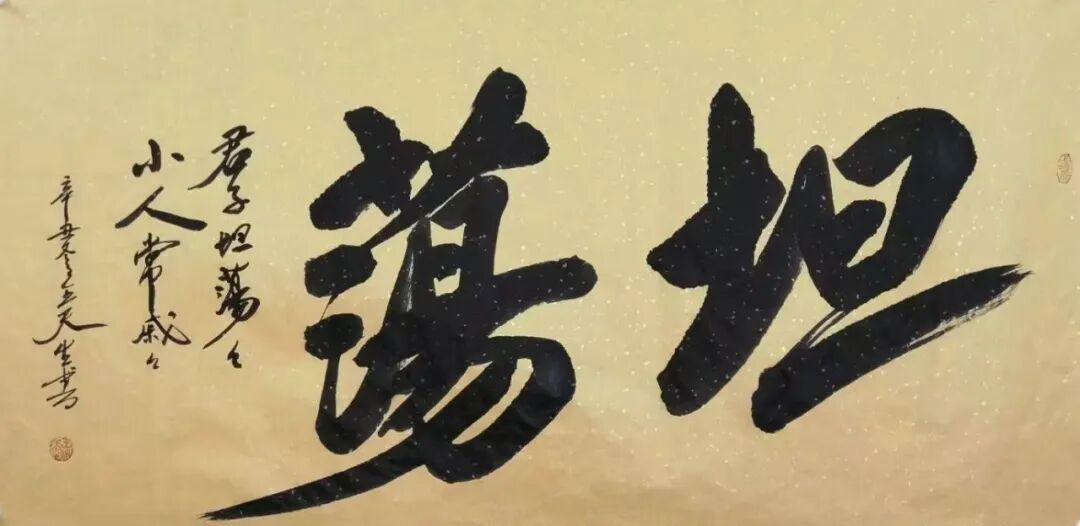 坦蕩
君子坦蕩々
小人常戚々
辛丑天生書